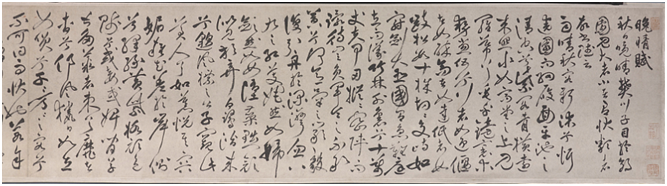 晚晴賦
秋日晚晴樊川子目於郊
園見大者小者有狀類者
故書賦云
雨晴秋容新沐兮忻
遶園而細履面平池之
清空兮紫閣青橫遠
來照水如高堂之上見
羅幕兮垂乎鏡裏木
勢黨伍兮行者如迎偃
者如醉高者如達低者
如跂松數十株切切交峙如
冠劍大臣國有急難庭
立而議竹林外裹兮十萬
丈夫甲刃摐摐密陣而
環侍豈負軍令之不敢
囂兮何意氣之嚴毅
復引舟於深灣忽八
九之紅芰姹然如婦
斂然如女墮蕊黦顏
似見放棄白鷺潛來
兮邈風標之公子窺此
美人兮如慕悅其容
媚雜花參差於岸側
兮絳綠黃紫格頑色
賤兮或妾或婢間草
甚多叢者束兮靡者
杳兮仰風獵日如立
如笑兮千千萬萬之容兮
不可得而狀也若予